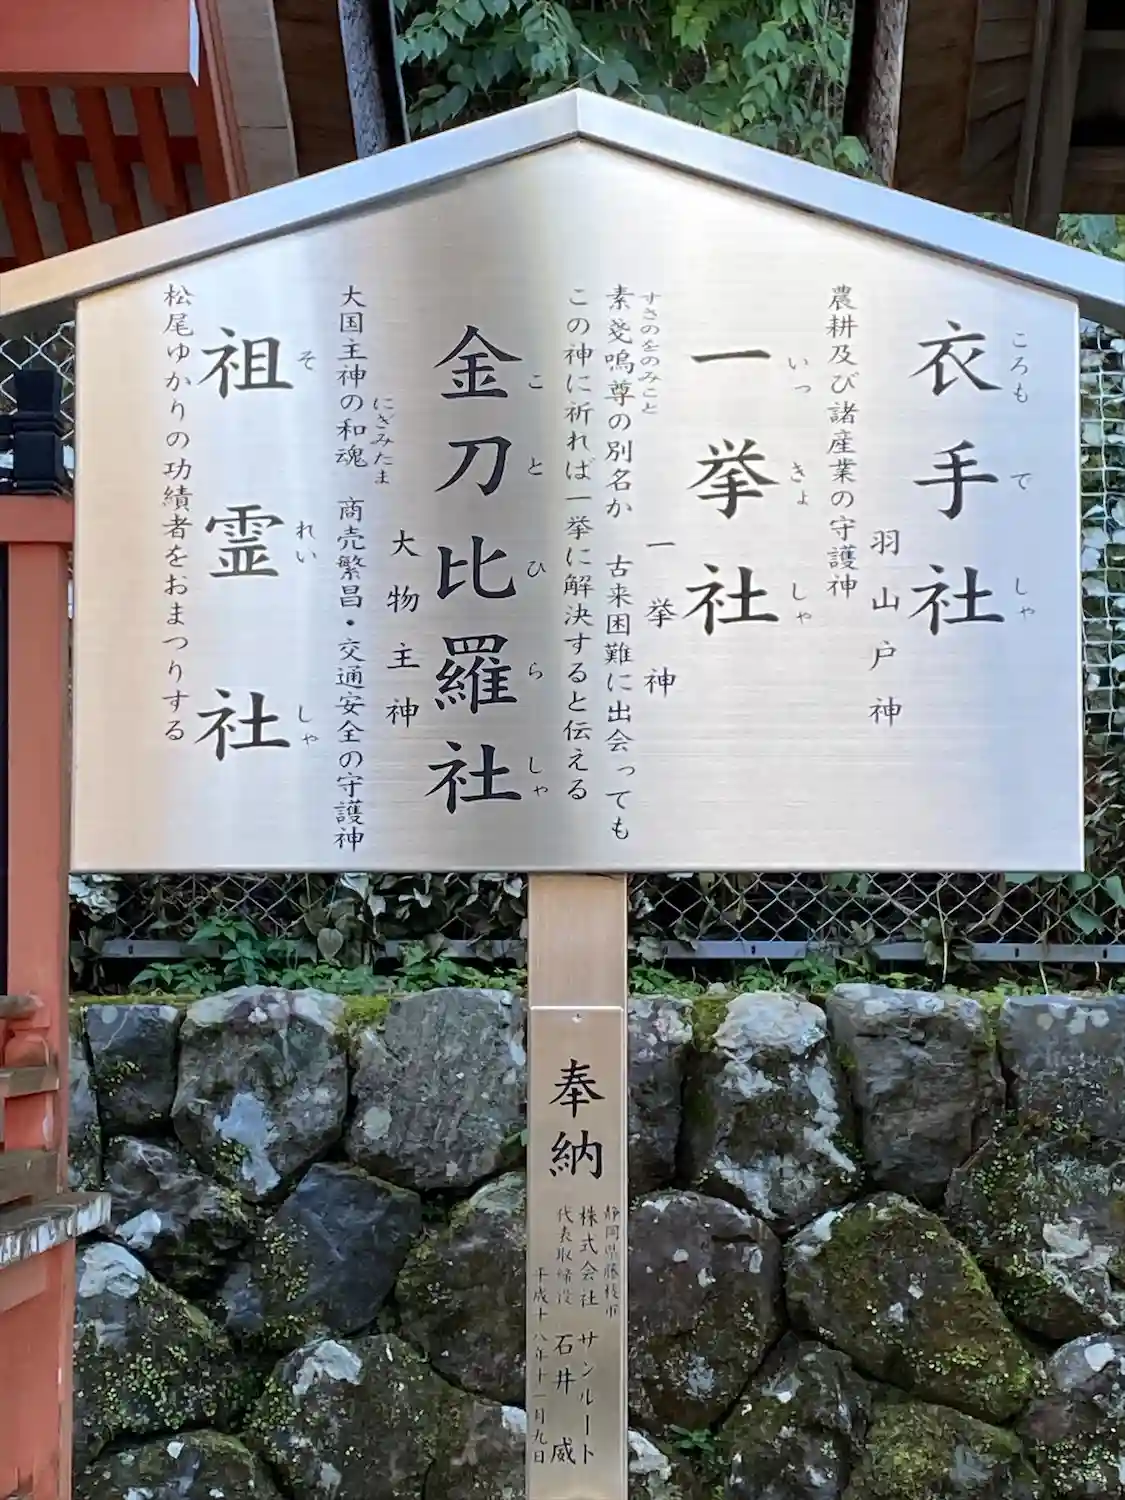 衣手社
ころもでしゃ
羽山戸神
農耕及び諸産業の守護神
一挙社
いっきょしゃ
一挙神
すさのをのみこと
素戔嗚尊の別名か 古来困難に出会っても
この神に祈れば一挙に解決すると伝える
金刀比羅社
ことひらしゃ
大物主神
にぎみたま
大国主神の和魂 商売繁昌・交通安全の守護神
祖霊社
それいしゃ
松尾ゆかりの功績者をおまつりする
奉納
静岡県藤枝市
株式会社 サンルート
代表取締役 石井 威
平成十八年十一月九日